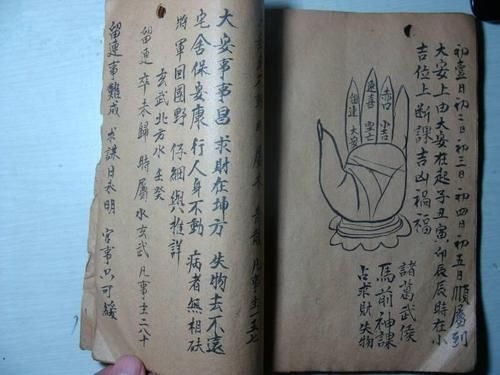 初壹日初二日初三日初四日初五日順屬到
大安上由大安在起子丑寅卯辰辰時在小
吉位上断課吉凶禍福
赤口 小吉
速喜 空亡
留連 大安
諸葛武侯
馬前神課
占求財失物
凡事主一五七
大安事事昌 求財在坤方 失物去不遠
宅舍保安康 行人身不動 病者無相砆
將軍回國野 仔細與推詳
玄武北方水 壬癸
留連 卒未歸 時屬水玄武 凡事主二八十
留連事難成 求謀日未明 官事只可緩